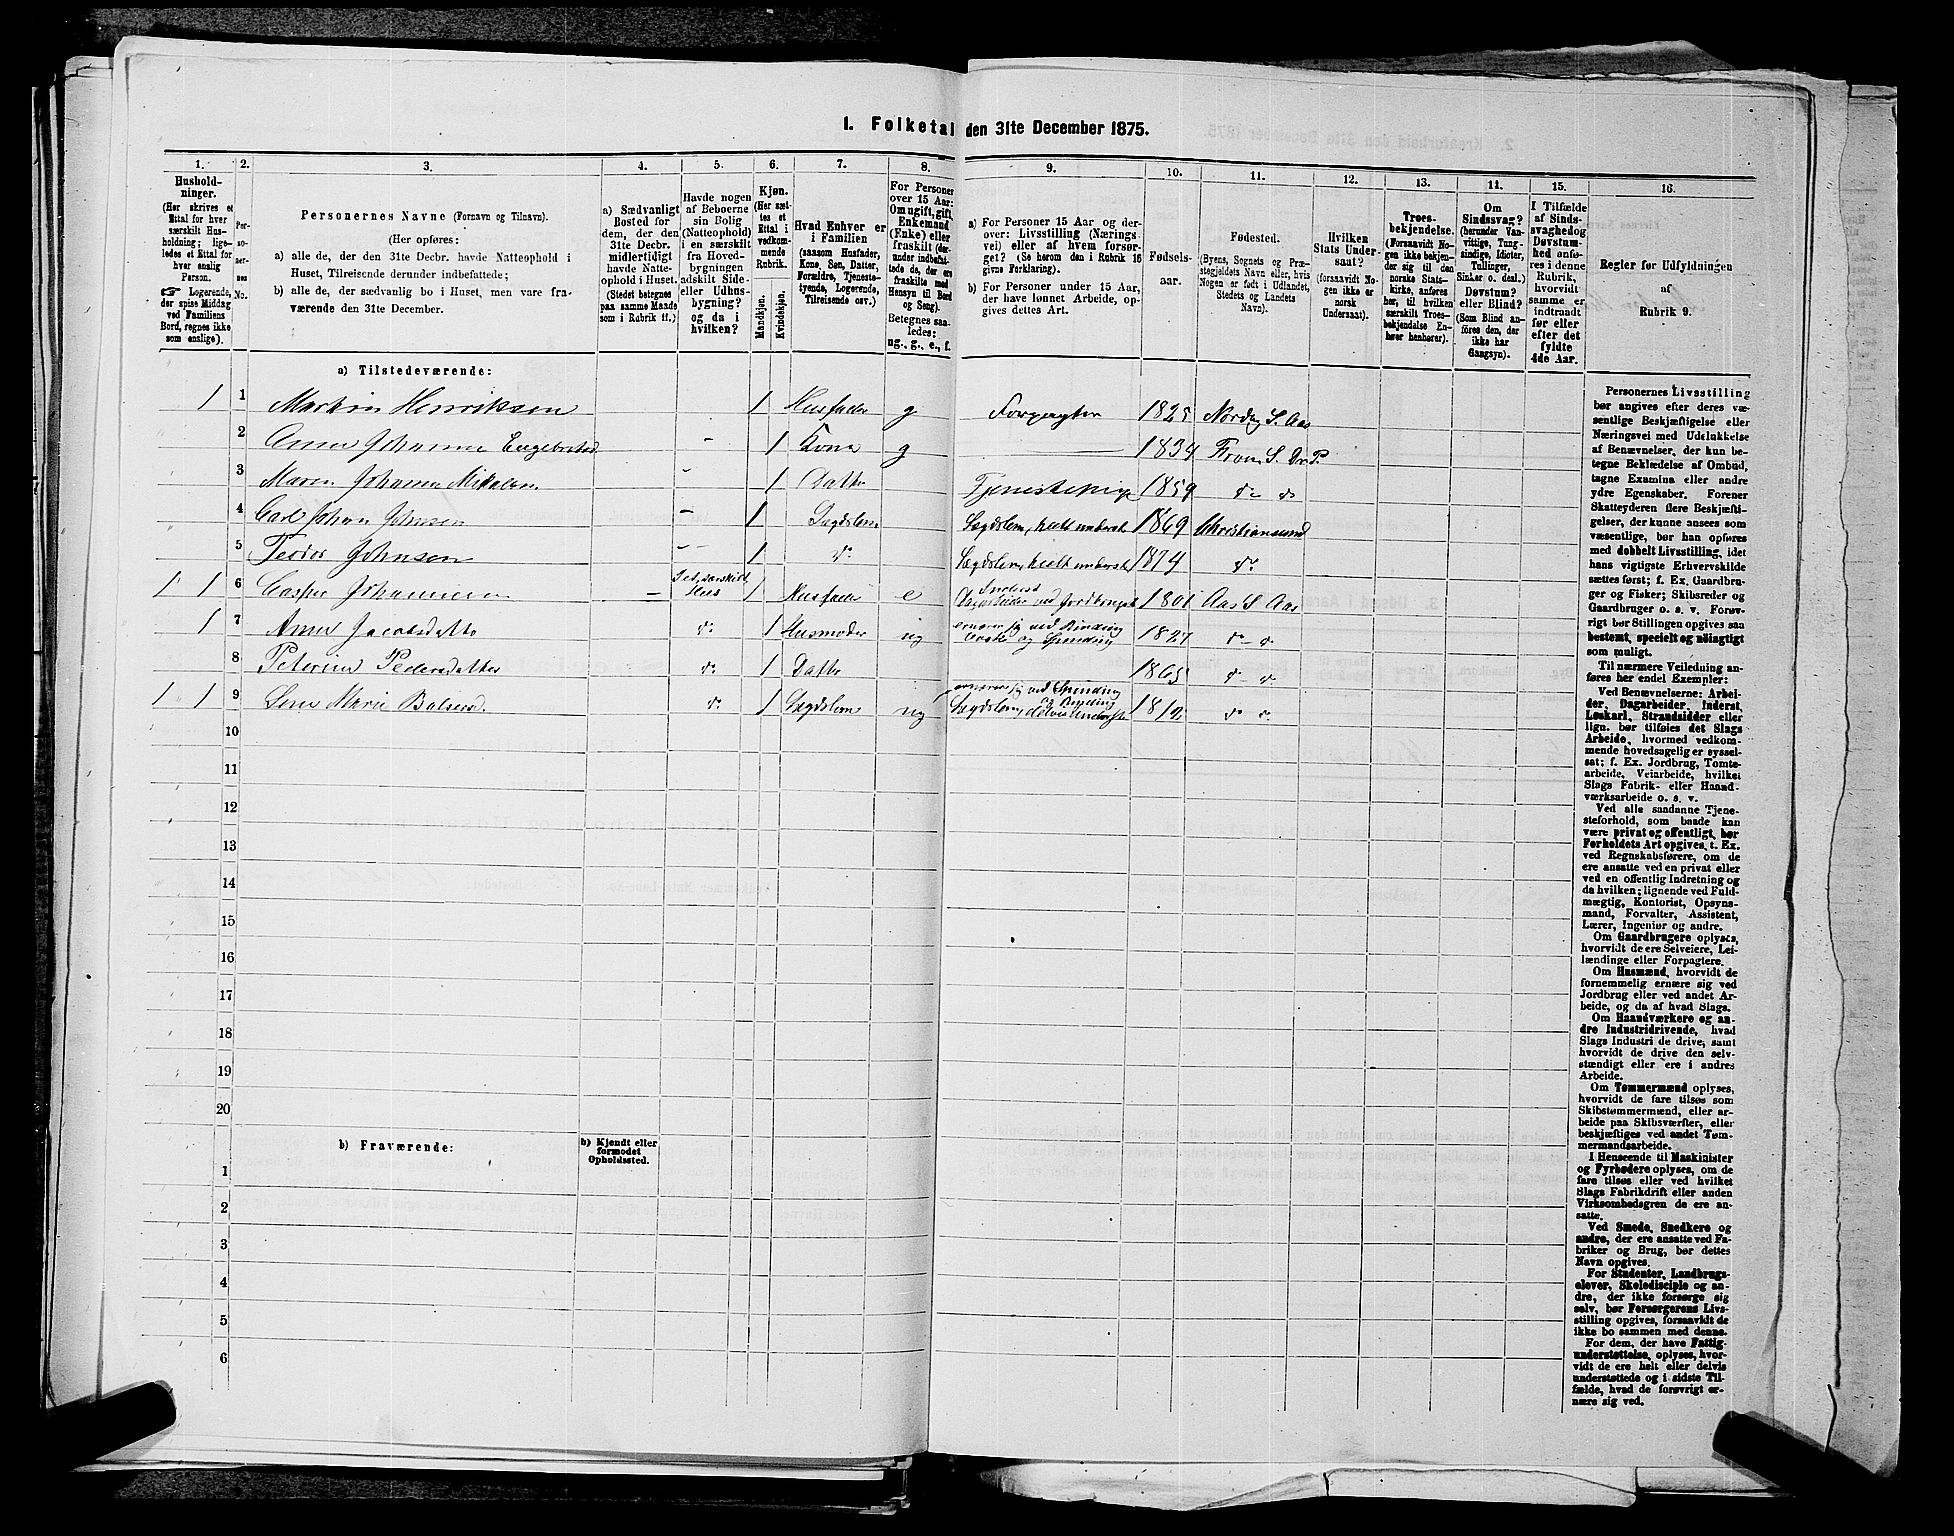 1. Folketal den 31te December 1875.
1. 2. 3. 4. 5. 6. 7. 8. 9. 10. 11. 12. 13. 14. 15. 16.
Hushold-
ninger.
(Her skrives et
Ettal for hver
særskilt Hus-
holdning; lige-
ledes et Ettal for
hver enslig
Person.
☞ Logerende,
der spise Middag
ved Familiens
Bord, regnes ikke
som enslige).
Per-
so-
ner-
nes
No.
Personernes Navne (Fornavn og Tilnavn).
(Her opføres:
a) alle de, der den 31te Decbr. havde Natteophold i
Huset, Tilreisende derunder indbefattede;
b) alle de, der sædvanlig bo i Huset, men vare fra-
værende den 31te December.
a) Sædvanligt
Bosted for
dem, der den
31te Decbr.
midlertidigt
havde Natte-
ophold i Huset.
(Stedet betegnes
paa samme Maade
som i Rubrik 11.)
Havde nogen
af Beboerne
sin Bolig
(Natteophold)
i en særskilt
fra Hoved-
bygningen
adskilt Side-
eller Udhus-
bygning?
og da i
hvilken?
Kjøn.
(Her sæt-
tes et
Ettal i
vedkom-
mende
Rubrik.
Mandkjøn.
Kvindekjøn.
Hvad Enhver er
i Familien
(saasom Husfader,
Kone, Søn, Datter,
Forældre, Tjeneste-
tyende, Logerende,
Tilreisende osv.)
For Personer
over 15 Aar:
Om ugift, gift,
Enkemand
(Enke) eller
fraskilt (der-
under indbefat-
tede de, der ere
fraskilte med
Hensyn til Bord
og Seng).
Betegnes saa-
ledes:
ug., g., e., f.
a) For Personer 15 Aar og der-
over: Livsstilling (Nærings-
vei) eller af hvem forsør-
get? (Se herom den i Rubrik 16
givne Forklaring).
b) For Personer under 15 Aar,
der have lønnet Arbeide, op-
gives dettes Art.
Fødsels-
aar.
Fødested.
(Byens, Sognets og Præ-
stegjeldets Navn eller, hvis
Nogen er født i Udlandet,
Stedets og Landets
Navn).
Hvilken
Stats Under-
saat?
(forsaavidt No-
gen ikke er
norsk
Undersaat).
Troes-
bekjendelse.
(Forsaavidt No-
gen ikke bekjen-
der sig til den
norske Stats-
kirke, anføres
her, til hvilken
særskilt Troes-
bekjendelse En-
hver henhører).
Om
Sindssvag?
(herunder Van-
vittige, Tung-
sindige, Idioter,
Tullinger,
Sinker o. desl.)
Døvstum?
eller Blind?
(Som Blind an-
føres den, der
ikke har
Gangsyn).
I Tilfælde
af Sinds-
svaghed og
Døvstum-
hed anfø-
res i denne
Rubrik,
hvorvidt
samme er
indtraadt
før eller
efter det
fyldte
4de Aar.
Regler før Udfyldningen
af
Rubrik 9.
a) Tilstedeværende:
1 1 Martin Henriksen 1 Husfader g Forpagter 1825 Nordby S. Aas
2 Anne Johanne Engebretsd - 1 Kone g 1834 Fron S. Dr. P.
3 Maren Johanne Mikalsen - 1 Datter Tjenestepige 1859 do do
4 Carl Johan Johnsen - 1 Lægdslem Lægdslem, helt underst. 1869 Christiansund
5 Teodor Johnsen - 1 do Lægdslem, helt underst 1874 do
1 1 6 Casper Johannesen - I et særskilt Hus 1 Husfader e Inderst Dagarbeider ved Jordbruget 1801 Aas S. Aas
1 7 Anne Jacobsdatter do 1 Husmoder ug ernærer sig ved Binding og Spinding 1827 do do
8 Peterine Pedersdatter do 1 Datter 1865 do do
1 1 9 Lene Marie do 1 Lægdslem ug ernærer sig ved Spinding og Binding Lægdslem, delvis underst. do do
10
11
12
13
14
15
16
17
18
19
20
b) Fraværende:
b) Kjendt eller
formodet
Opholdssted.
1
2
3
4
5
6
Personernes Livsstilling
bør angives efter deres væ-
sentlige Beskjæftigelse eller
Næringsvei med Udelukkelse
af Benævnelser, der kun be-
tegne Bekledelse af Ombud,
tagne Examina eller andre
ydre Egenskaber. Forener
Skatteyderen flere Beskjæfti-
gelser, der kunne ansees som
væsentlige, bør han opføres
med dobbelt Livsstilling, idet
hans vigtigste Erhvervskilde
sættes først; f. Ex. Gaardbru-
ger og Fisker; Skibsreder og
Gaardbruger o. s. v. Forøv-
rigt bør Stillingen opgives saa
bestemt, specielt og nöiagtigt
som muligt.
Til nærmere Veiledning an-
føres her endel Exempler:
Ved Benævnelserne: Arbei-
der, Dagarbeider, Inderst,
Løskarl, Strandsidder eller
lign. bør tilføies det Slags
Arbeide, hvormed vedkom-
mende hovedsagelig er syssel-
sat; f. Ex. Jordbrug, Tomte-
arbeide, Veiarbeide, hvilket
Slags Fabrik- eller Haand-
værksarbeide o. s. v.
Ved alle saadanne Tjene-
steforhold, som baade kan
være privat og offentligt, bør
Forholdets Art opgives, t. Ex.
ved Regnskabsførere, om de
ere ansatte ved en privat eller
ved en offentlig Indretning og
da hvilken; lignende ved Fuld-
mægtig, Kontorist, Opsyns-
mand, Forvalter, Assistent,
Lærer, Ingeniør og andre.
Om Gaardbrugere oplyses,
hvorvidt de ere Selveiere, Lei-
lændinge eller Forpagtere.
Om Husmænd, hvorvidt de
fornemmelig ernære sig ved
Jordbrug eller ved andet Ar-
beide, og da af hvad Slags.
Om Haandværkere og an-
dre Industridrivende, hvad
Slags Industri de drive, samt
hvorvidt de drive den selv-
stændigt eller ere i andres
Arbeide.
Om Tømmermænd oplyses,
hvorvidt de fare tilsøs som
Skibstømmermænd, eller ar-
beide paa Skibsværfter, eller
beskjæftiges ved andet Tøm-
mermandsarbeide.
I Henseende til Maskinister
og Fyrbødere oplyses, om de
fare tilsøs eller ved hvilket
Slags Fabrikdrift eller anden
Virksomhedsgren de ere an-
satte.
Ved Smede, Snedkere og
andre, der ere ansatte ved Fa-
briker og Brug, bør dettes
Navn opgives.
For Studenter, Landbrugs-
elever, Skoledisciple og an-
dre, der ikke forsørge sig
selv, bør Forsørgerens Livs-
stilling opgives, forsaavidt de
ikke bo sammen med denne.
For dem, der have Fattig-
understøttelse, oplyses, hvor-
vidt de ere helt eller delvis
understøttede og i sidste Til-
fælde, hvad de forøvrigt er-
nære sig ved.